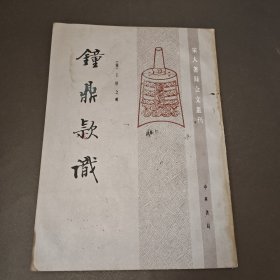 宋人著録金文叢刊
鐘鼎款識
〔宋〕王厚之輯
中華書局